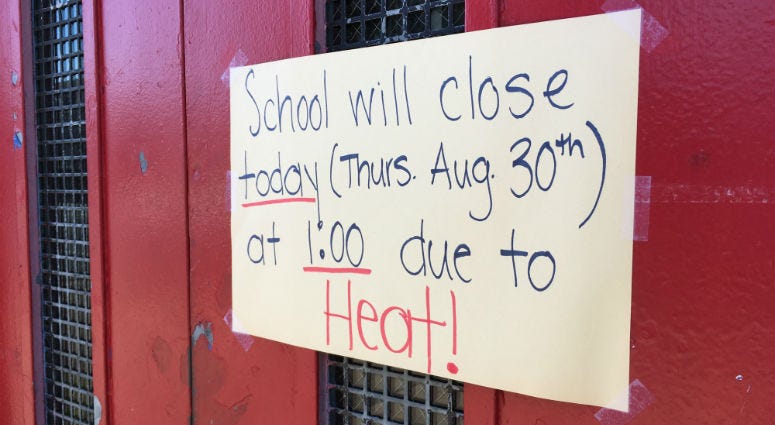 School will close
today (Thurs. Aug. 30th)
at 1:00 due to
Heat!